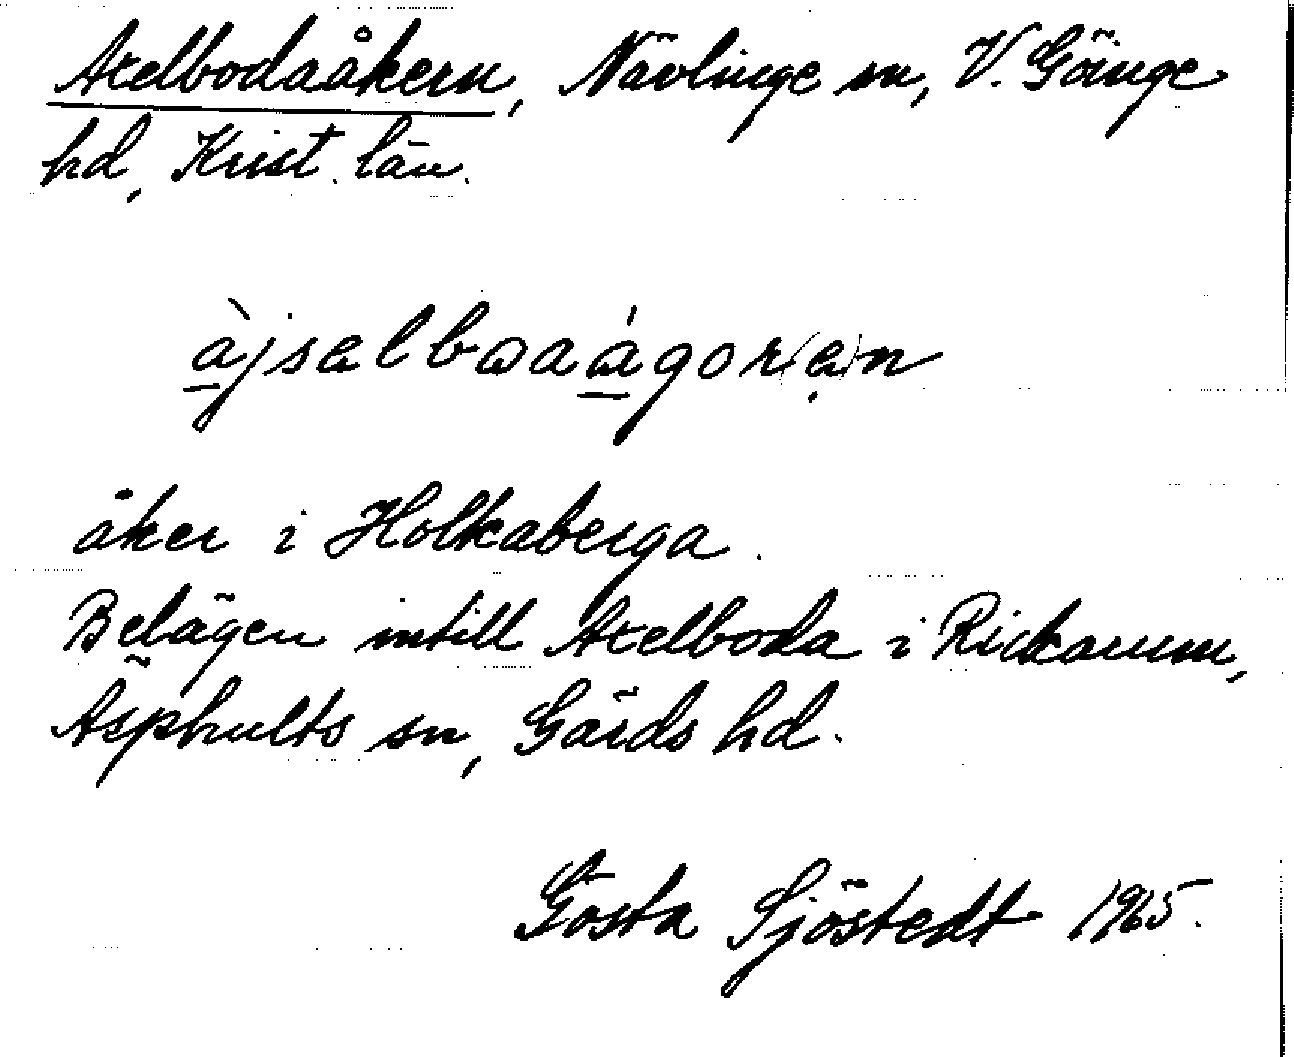 Axelbodaåkern, Nävlinge sn, V. Göinge
hd, Krist. län.
àjsəlbωaágor(ə)n
åker i Holkaberga.
Belägen intill Axelboda i Rickarum,
Äsphults sn, Gärds hd.
Gösta Sjöstedt 1965.